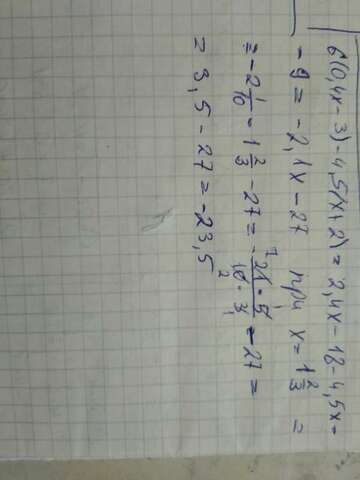 6(0,4x-3)-4,5(x+2)=2,4x-18-4,5x-
-9=-2,1x-27 при x=1 2/3 =
=-2 1/10 · 1 2/3 -27=- 21·5/10·3 -27=
=3,5-27=-23,5